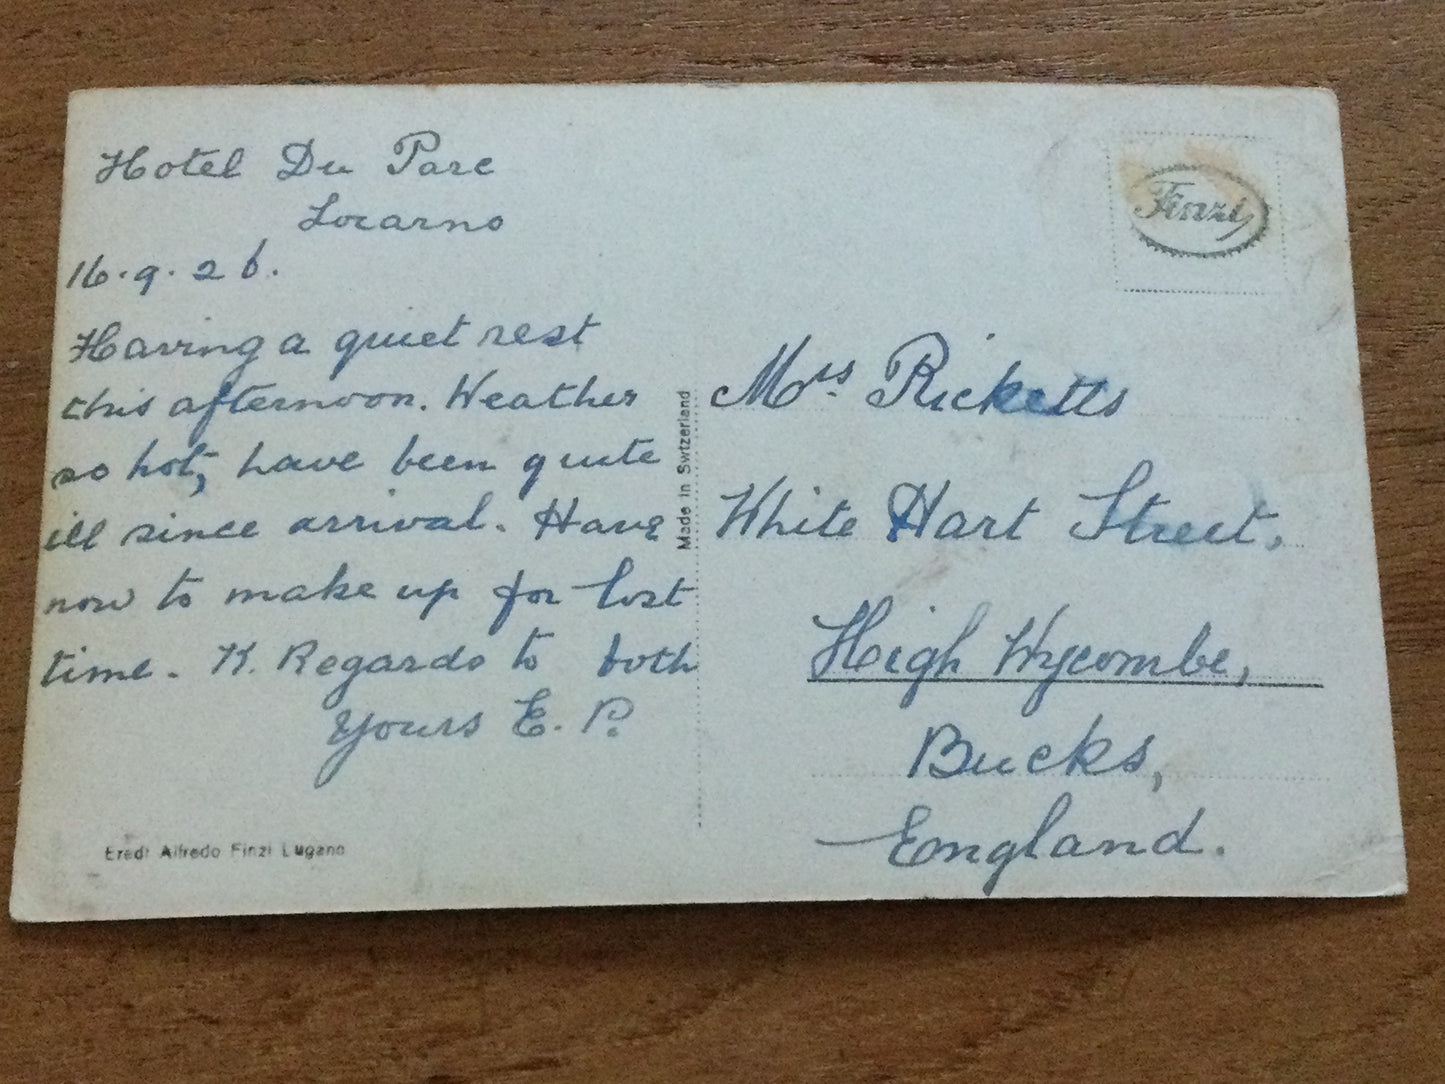 Hotel Du Parc
Locarno
16.9.26.
Having a quiet rest
this afternoon. Weather
so hot, have been quite
ill since arrival. Have
now to make up for lost
time. K. Regards to both
Yours E. P.
Eredi Alfredo Finzi Lugano
Made in Swtzerland
Finzi
Mrs. Ricketts
White Hart Street,
High Wycombe,
Bucks,
England.